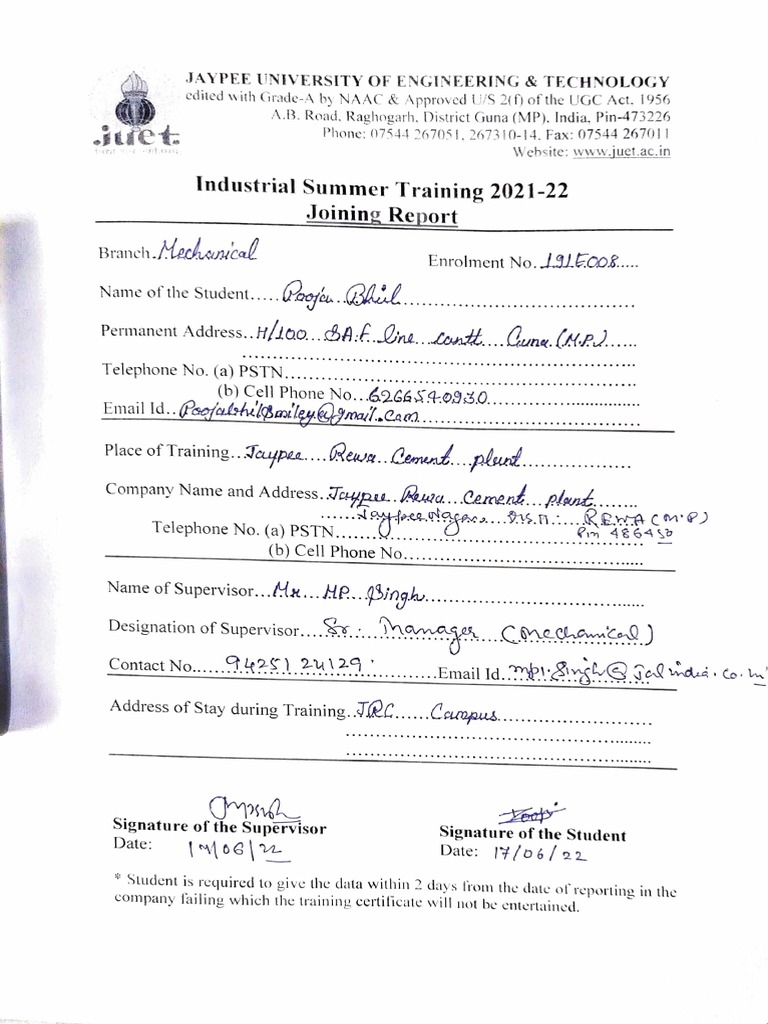 JAYPEE UNIVERSITY OF ENGINEERING & TECHNOLOGY
edited with Grade-A by NAAC & Approved U/S 2(f) of the UGC Act, 1956
A.B. Road, Raghogarh, District Guna (MP), India, Pin-473226
Phone: 07544 267051, 267310-14, Fax: 07544 267011
Website: www.juet.ac.in
juet
Industrial Summer Training 2021-22
Joining Report
Branch. Mechanical Enrolment No. 191E008
Name of the Student Pooja Bhil
Permanent Address H/100 S.A.F line cantt Guna (M.P.)
Telephone No. (a) PSTN
(b) Cell Phone No. 6266540930
Email Id. Poojabhil8smiley@gmail.com
Place of Training Jaypee Rewa Cement plant
Company Name and Address Jaypee Rewa Cement plant
Jaypee Nagar REWA (M.P)
Telephone No. (a) PSTN Pin 486450
(b) Cell Phone No.
Name of Supervisor Mr MP Singh
Designation of Supervisor Sr. Manager (Mechanical)
Contact No. 9425124129 Email Id. mpi.Singh@Jalindia.co.in
Address of Stay during Training JRC Campus
Signature of the Supervisor Signature of the Student
Date: 17/06/22 Date: 17/06/22
* Student is required to give the data within 2 days from the date of reporting in the
company failing which the training certificate will not be entertained.